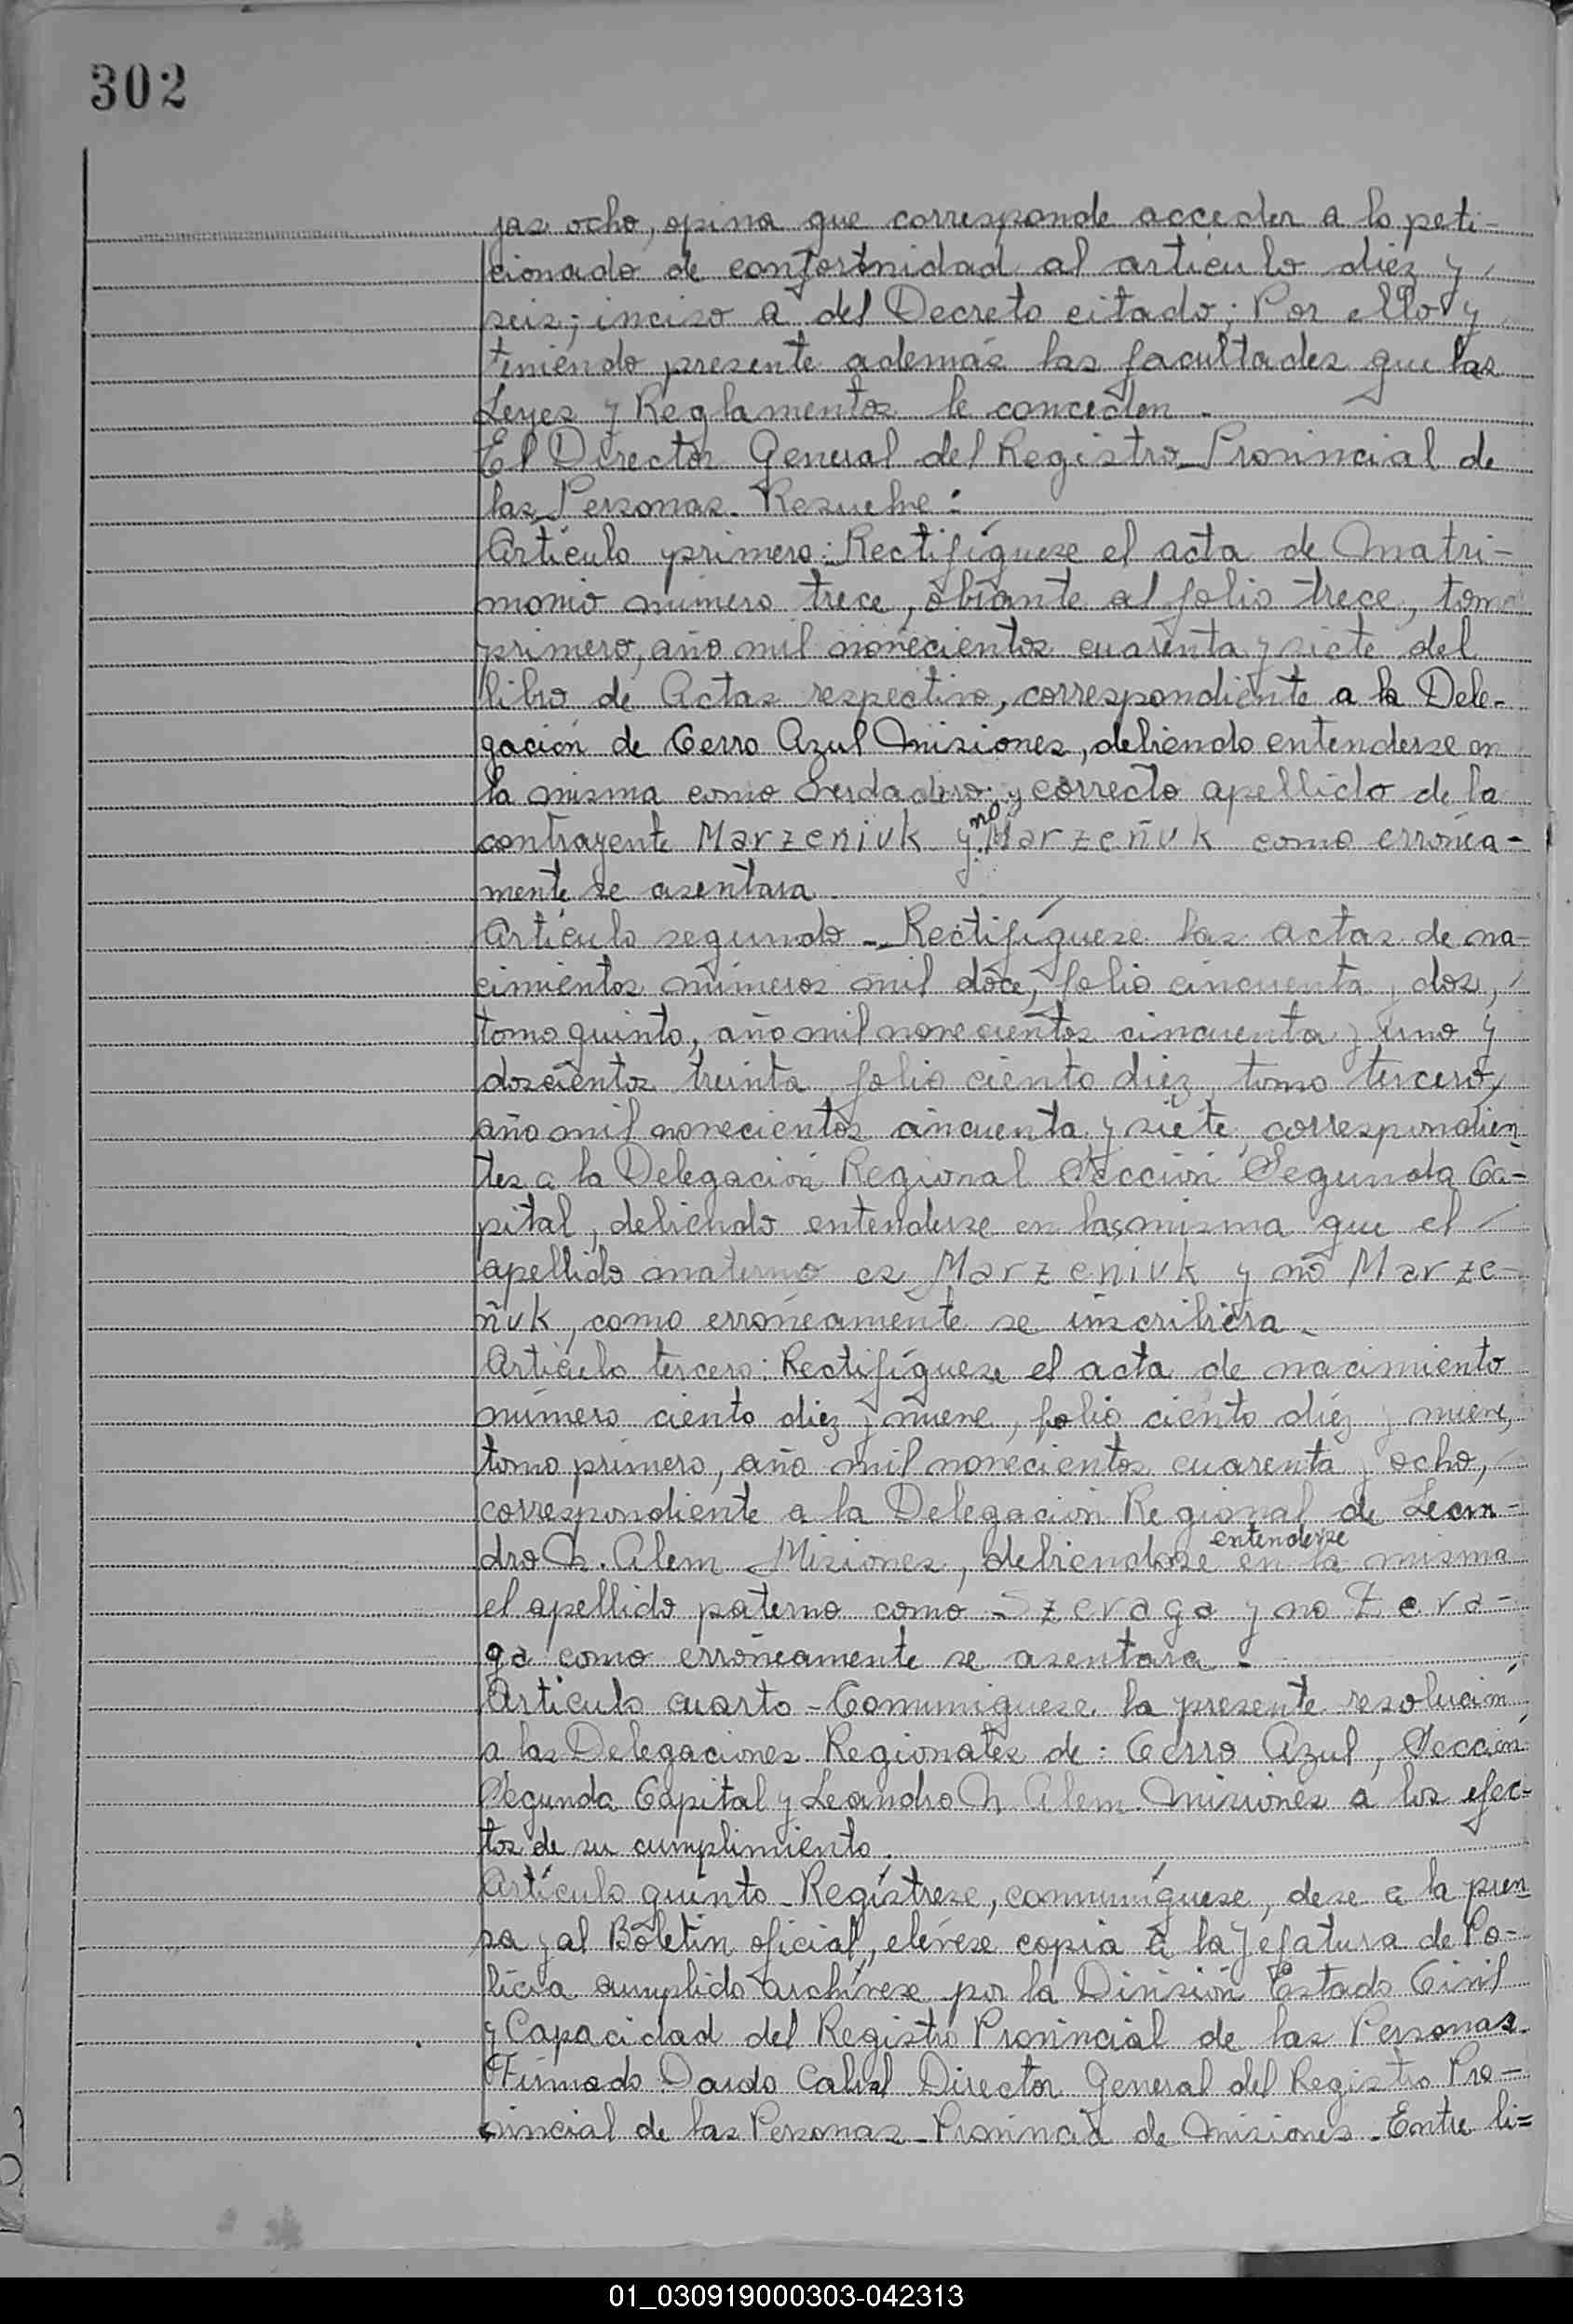 302
jas ocho, opina que corresponde acceder a lo peti-
cionado de conformidad al artículo diez y
seis; inciso a del Decreto citado; Por ello y
teniendo presente además las facultades que las
Leyes y Reglamentos le conceden.
El Director General del Registro Provincial de
las Personas. Resuelve:
Artículo primero: Rectifíquese el acta de Matri-
monio número trece, obrante al folio trece, tomo
primero, año mil novecientos cuarenta y siete del
libro de Actas respectivo, correspondiente a la Dele-
gación de Cerro Azul Misiones, debiendo entenderse en
la misma como verdadero y correcto apellido de la
contrayente Marzeniuk y no Marzeñuk como errónea-
mente se asentara
Artículo segundo - Rectifíquese las actas de na-
cimientos números mil doce, folio cincuenta y dos,
tomo quinto, año mil novecientos cincuenta y uno y
doscientos treinta folio ciento diez tomo tercero,
año mil novecientos cincuenta y siete, correspondien-
tes a la Delegación Regional Sección Segunda Ca-
pital, debiendo entenderse en las misma que el
apellido materno es Marzeniuk y no Marze-
ñuk, como erróneamente se inscribiera.
Artículo tercero: Rectifíquese el acta de nacimiento
número ciento diez y nueve, folio ciento diez y nueve,
tomo primero, año mil novecientos cuarenta y ocho,
correspondiente a la Delegación Regional de Lean-
dro N. Alem Misiones, debiendose entenderse en la misma
el apellido paterno como Szeraga y no Zera-
ga como erróneamente se asentara.
Artículo cuarto - Comuniquese la presente resolución
a las Delegaciones Regionales de: Cerro Azul, Sección
Segunda Capital y Leandro N. Alem Misiones a los efec-
tos de su cumplimiento.
Artículo quinto - Regístrese, comuníquese, dese a la pren
sa y al Boletin oficial, elévese copia a la Jefatura de Po-
licia cumplido archívese por la División Estado Civil
y Capacidad del Registro Provincial de las Personas.
Firmado Dardo Cabral Director General del Registro Pro-
vincial de las Personas - Provincia de Misiones. Entre li=
01_030919000303-042313